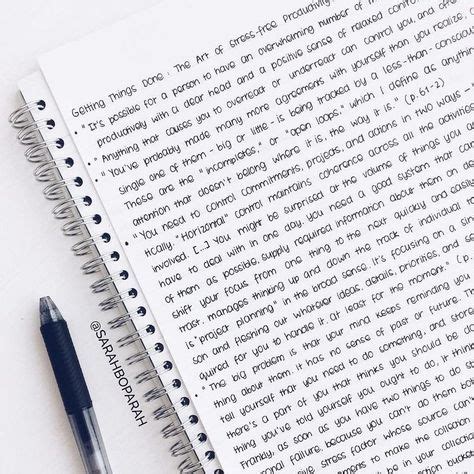 Getting Things Done: The Art of Stress-free Productivity
• "It's possible for a person to have an overwhelming number of
productively with a clear head and a positive sense of relaxed control."
• Anything that causes you to overreact or underreact can control you, and often
• "You've probably made many more agreements with yourself than you realize,
single one of them - big or little - is being tracked by a less-than-conscious
These are the "incompletes," or "open loops," which I define as anything
attention that doesn't belong where it is, the way it is." (p.
• "You need to control commitments, projects, and actions in two ways -
tically. "Horizontal" control maintains coherence across all the activities
involved. [...] You might be surprised at the volume of things you
have to deal with in one day. You need a good system that can
of them as possible, supply required information about them on
shift your focus from one thing to the next quickly and easily
trast, manages thinking up and down the track of individual
is "project planning" in the broad sense. It's focusing on a
son and fleshing out whatever ideas, details, priorities, and
quired for you to handle it, at least for the moment." (p.
• "The big problem is that your mind keeps reminding you
thing about them. It has no sense of past or future. Th
tell yourself that you need to do something, and store
there's a part of you that thinks you should be
thing you've told yourself you ought to do, it think
Frankly, as soon as you have two things to do
sonal failure, because you can't do them b
stress factor whose source can
to make the collection
@SARAHBOPARAH